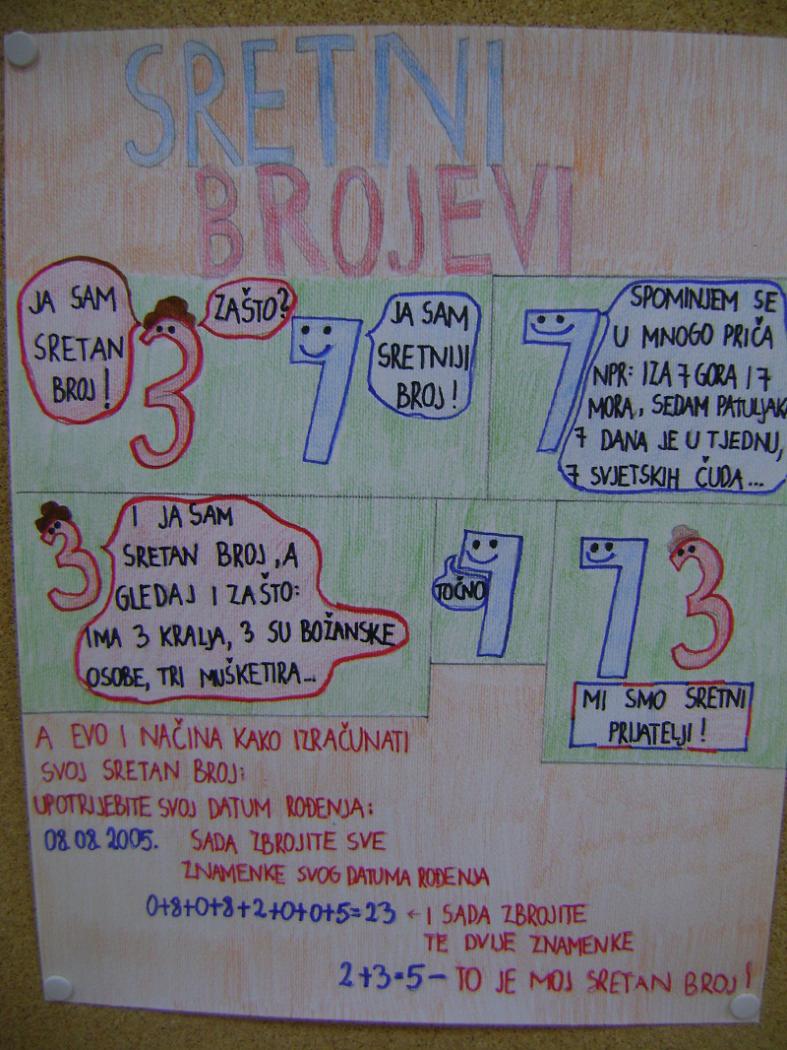 SRETNI
BROJEVI
JA SAM
SRETAN
BROJ!
3
ZAŠTO?
7
JA SAM
SRETNIJI
BROJ!
7
SPOMINJEM SE
U MNOGO PRIČA
NPR: IZA 7 GORA I 7
MORA, SEDAM PATULJAK
7 DANA JE U TJEDNU,
7 SVJETSKIH ČUDA...
3
I JA SAM
SRETAN BROJ, A
GLEDAJ I ZAŠTO:
IMA 3 KRALJA, 3 SU BOŽANSKE
OSOBE, TRI MUŠKETIRA...
7
TOČNO
7 3
MI SMO SRETNI
PRIJATELJI!
A EVO I NAČINA KAKO IZRAČUNATI
SVOJ SRETAN BROJ:
UPOTRIJEBITE SVOJ DATUM ROĐENJA:
08.08.2005. SADA ZBROJITE SVE
ZNAMENKE SVOG DATUMA ROĐENJA
0+8+0+8+2+0+0+5=23 ← I SADA ZBROJITE
TE DVIJE ZNAMENKE
2+3=5 – TO JE MOJ SRETAN BROJ!